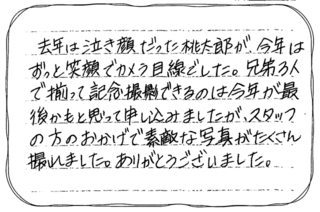 去年は泣き顔だった桃太郎が、今年は
ずっと笑顔でカメラ目線でした。兄弟3人
で揃って記念撮影できるのは今年が最
後かもと思って申し込みましたが、スタッフ
の方のおかげで素敵な写真がたくさん
撮れました。ありがとうございました。